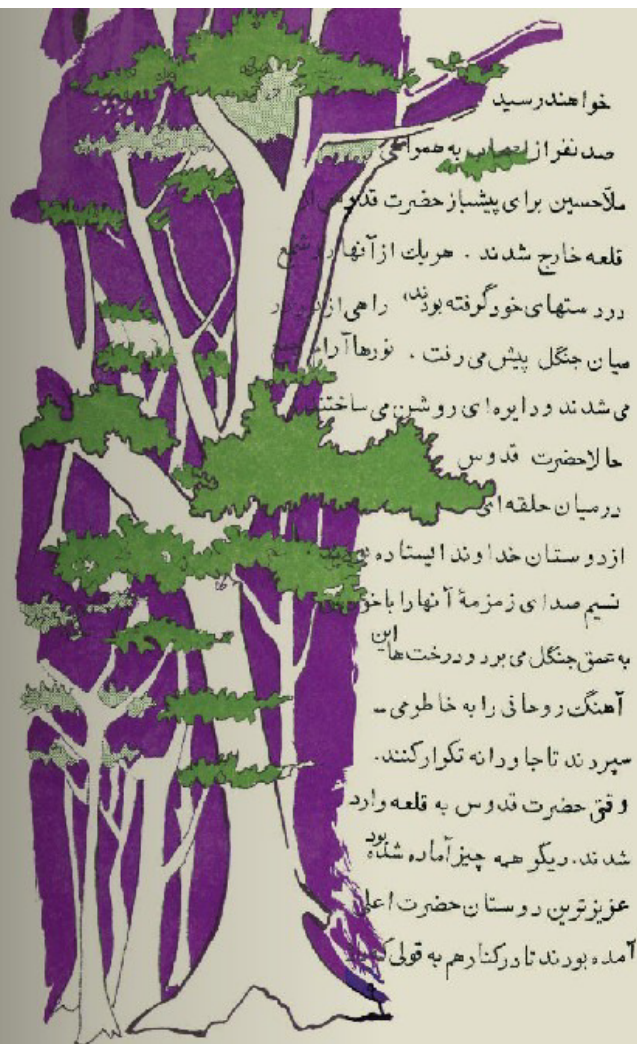 خواهند رسید
صد نفر از اصحاب به همراهی
ملّاحسین برای پیشباز حضرت قدوس از
قلعه خارج شدند . هریك از آنها دو شمع
در دستهای خود گرفته بودند، راهی از نور در
میان جنگل پیش می رفت . نورها آرام جمع
می شدند و دایره ای روشن می ساختند
حالا حضرت قدوس
در میان حلقه ای
از دوستان خداوند ایستاده بودند
نسیم صدای زمزمهٔ آنها را با خود
به عمق جنگل می برد و درخت ها این
آهنگ روحانی را به خاطر می ـ
سپردند تا جاودانه تکرار کنند.
وقتی حضرت قدوس به قلعه وارد
شدند. دیگر همه چیز آماده شده بود
عزیزترین دوستان حضرت اعلی
آمده بودند تا در کنار هم به قولی که